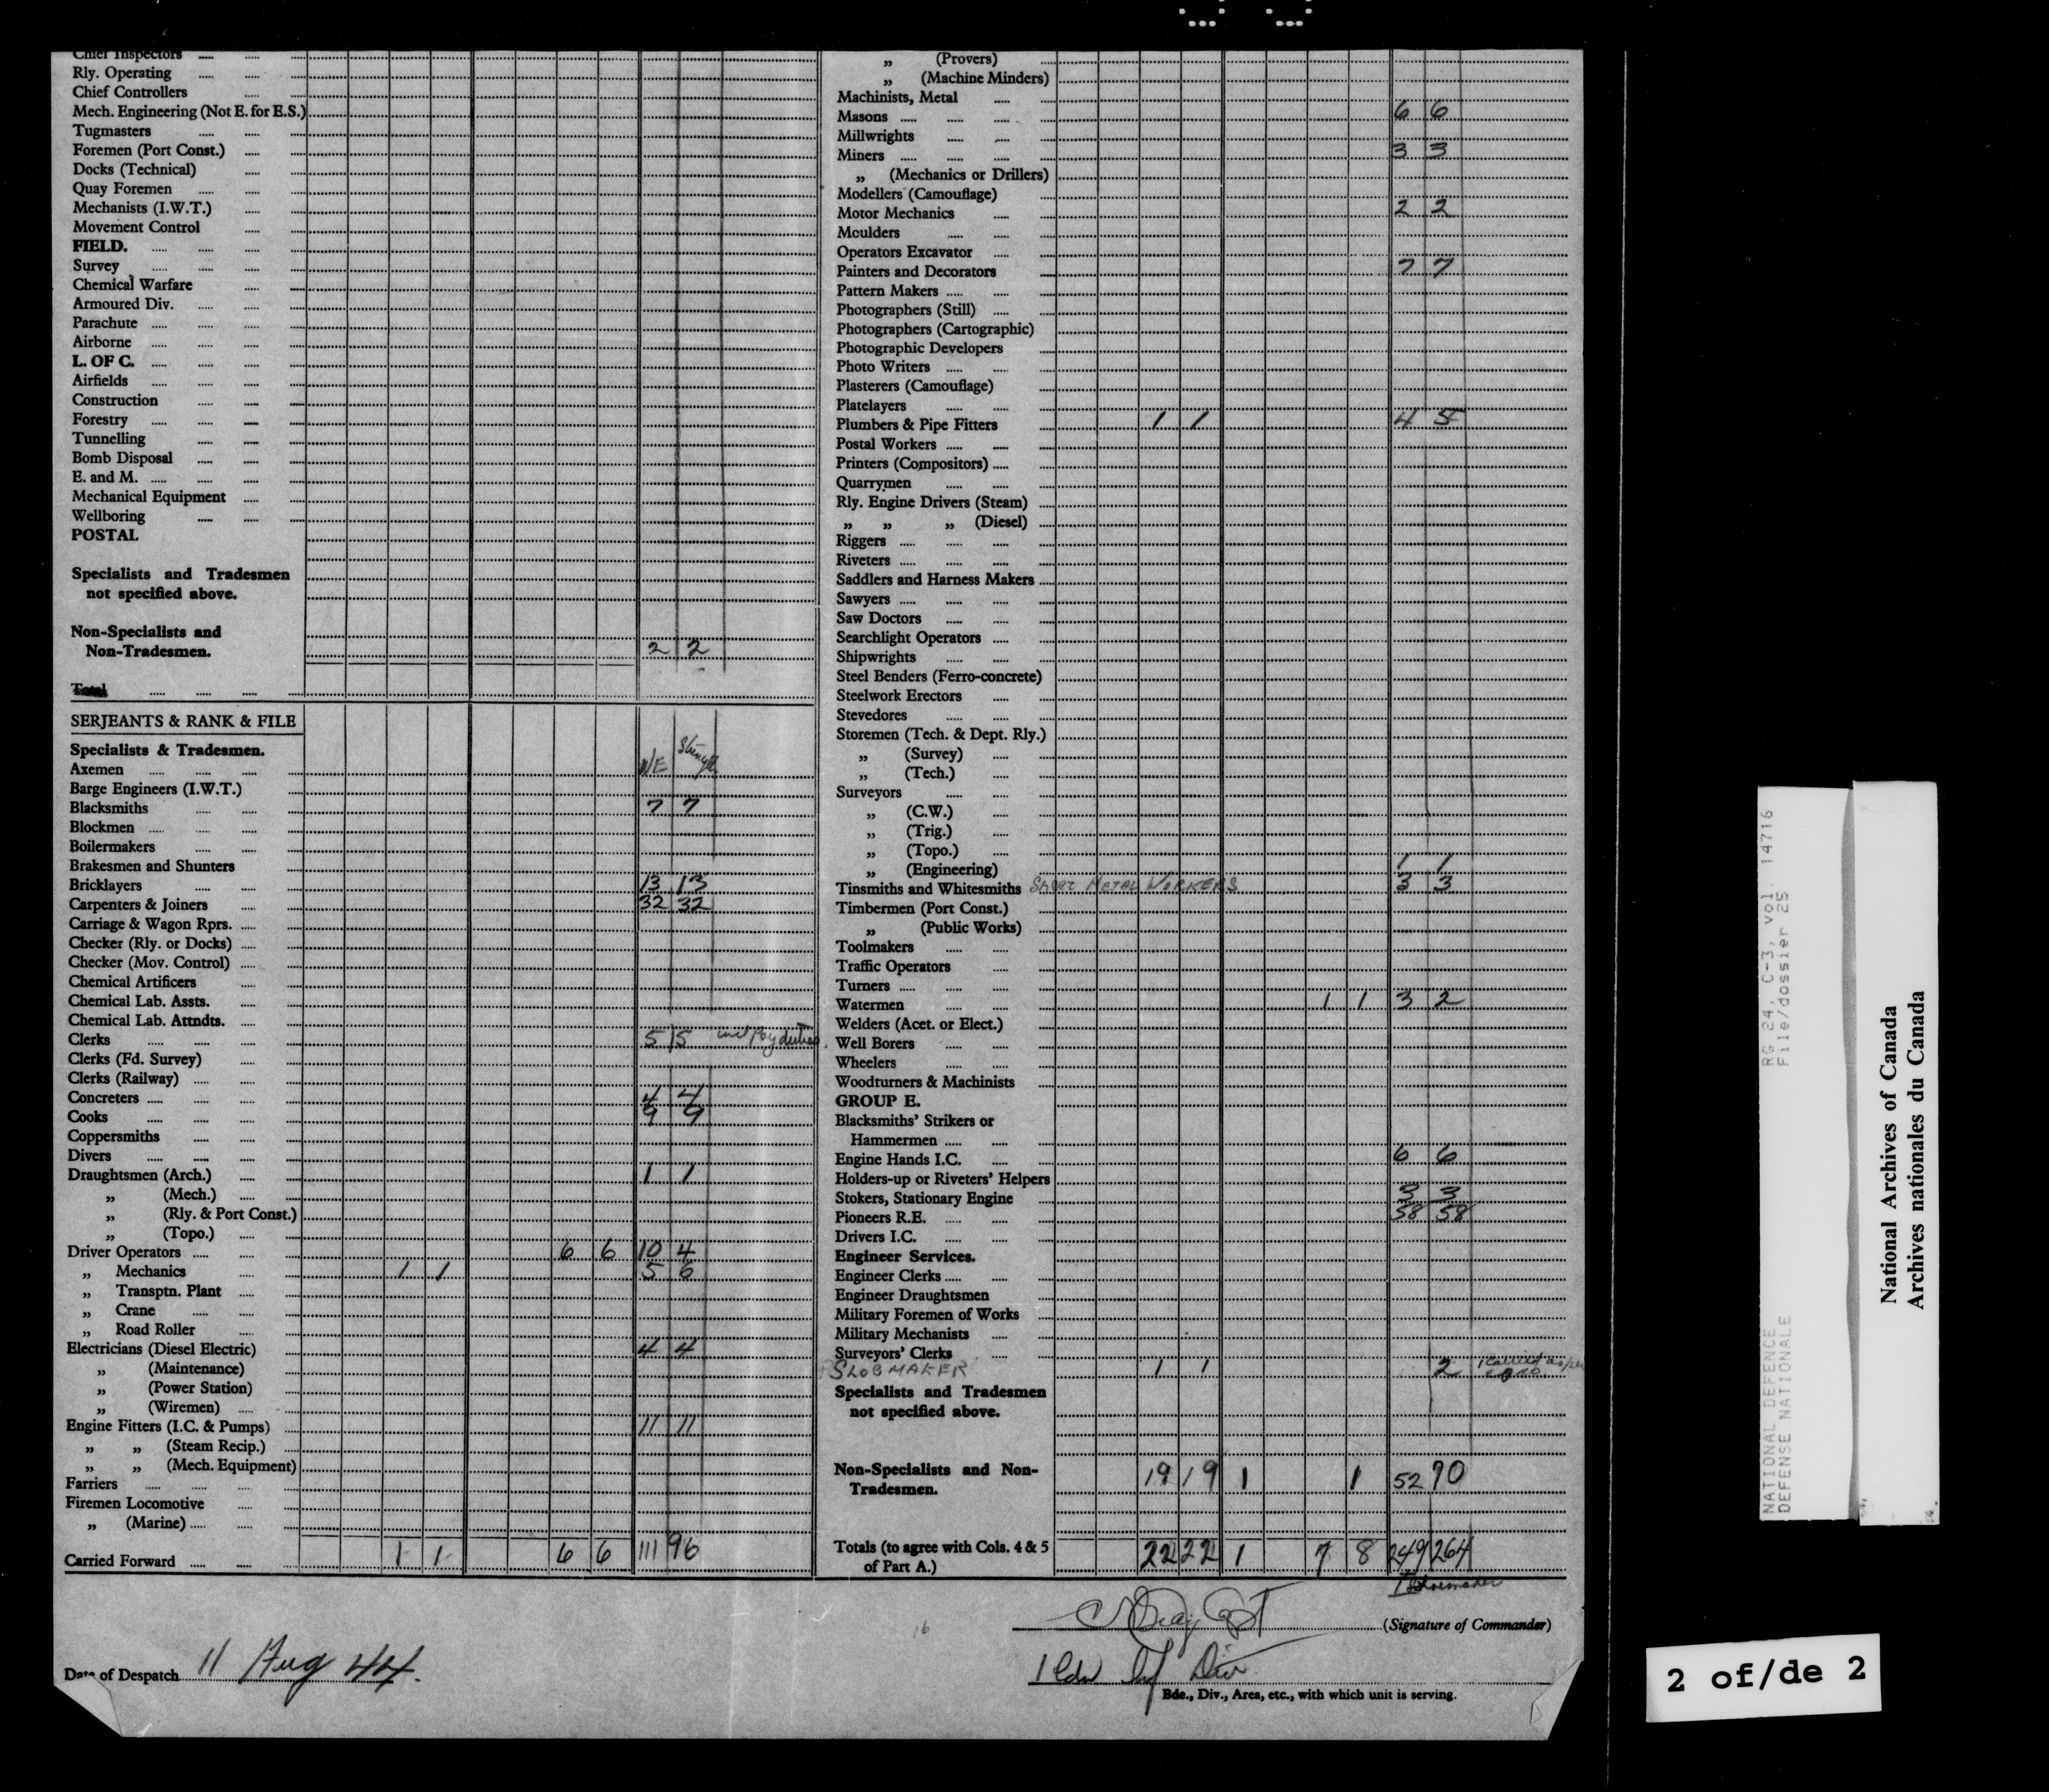 Chief Inspectors
Rly. Operating
Chief Controllers
Mech. Engineering (Not E. for E.S.)
Tugmasters
Foremen (Port Const.)
Docks (Technical)
Quay Foremen
Mechanists (I.W.T.)
Movement Control
FIELD.
Survey
Chemical Warfare
Armoured Div.
Parachute
Airborne
L. OF C.
Airfields
Construction
Forestry
Tunnelling
Bomb Disposal
E. and M.
Mechanical Equipment
Wellboring
POSTAL
Specialists and Tradesmen
not specified above.
Non-Specialists and
Non-Tradesmen. 2 2
Total
SERJEANTS & RANK & FILE
Specialists & Tradesmen. WE Strength
Axemen
Barge Engineers (I.W.T.)
Blacksmiths 7 7
Blockmen
Boilermakers
Brakesmen and Shunters
Bricklayers 13 13
Carpenters & Joiners 32 32
Carriage & Wagon Rprs.
Checker (Rly. or Docks)
Checker (Mov. Control)
Chemical Artificers
Chemical Lab. Assts.
Chemical Lab. Attndts.
Clerks 5 5 incl Pay duties
Clerks (Fd. Survey)
Clerks (Railway)
Concreters 4 4
Cooks 9 9
Coppersmiths
Divers
Draughtsmen (Arch.) 1 1
„ (Mech.)
„ (Rly. & Port Const.)
„ (Topo.)
Driver Operators 6 6 10 4
„ Mechanics 1 1 5 6
„ Transptn. Plant
„ Crane
„ Road Roller
Electricians (Diesel Electric) 4 4
„ (Maintenance)
„ (Power Station)
„ (Wiremen)
Engine Fitters (I.C. & Pumps) 11 11
„ „ (Steam Recip.)
„ „ (Mech. Equipment)
Farriers
Firemen Locomotive
„ (Marine)
Carried Forward 1 1 6 6 111 96
„ (Provers)
„ (Machine Minders)
Machinists, Metal
Masons 6 6
Millwrights
Miners 3 3
„ (Mechanics or Drillers)
Modellers (Camouflage)
Motor Mechanics 2 2
Moulders
Operators Excavator
Painters and Decorators 7 7
Pattern Makers
Photographers (Still)
Photographers (Cartographic)
Photographic Developers
Photo Writers
Plasterers (Camouflage)
Platelayers
Plumbers & Pipe Fitters 1 1 4 5
Postal Workers
Printers (Compositors)
Quarrymen
Rly. Engine Drivers (Steam)
„ „ „ (Diesel)
Riggers
Riveters
Saddlers and Harness Makers
Sawyers
Saw Doctors
Searchlight Operators
Shipwrights
Steel Benders (Ferro-concrete)
Steelwork Erectors
Stevedores
Storemen (Tech. & Dept. Rly.)
„ (Survey)
„ (Tech.)
Surveyors
„ (C.W.)
„ (Trig.)
„ (Topo.)
„ (Engineering) 1 1
Tinsmiths and Whitesmiths SHEET METAL WORKERS 3 3
Timbermen (Port Const.)
„ (Public Works)
Toolmakers
Traffic Operators
Turners
Watermen 1 1 3 2
Welders (Acet. or Elect.)
Well Borers
Wheelers
Woodturners & Machinists
GROUP E.
Blacksmiths' Strikers or
Hammermen
Engine Hands I.C. 6 6
Holders-up or Riveters' Helpers
Stokers, Stationary Engine 3 3
Pioneers R.E. 58 58
Drivers I.C.
Engineer Services.
Engineer Clerks
Engineer Draughtsmen
Military Foremen of Works
Military Mechanists
Surveyors' Clerks
SHOEMAKER 1 1 2
Specialists and Tradesmen
not specified above.
Non-Specialists and Non-
Tradesmen. 19 19 1 1 52 70
Totals (to agree with Cols. 4 & 5
of Part A.) 22 22 1 7 8 249 264
1 Shoemaker
Capt
(Signature of Commander)
Date of Despatch 11 Aug 44.
1 Cdn Inf Div
Bde., Div., Area, etc., with which unit is serving.
NATIONAL DEFENCE RG 24, C-3, vol. 14716
DEFENSE NATIONALE File/dossier 25
National Archives of Canada
Archives nationales du Canada
2 of/de 2